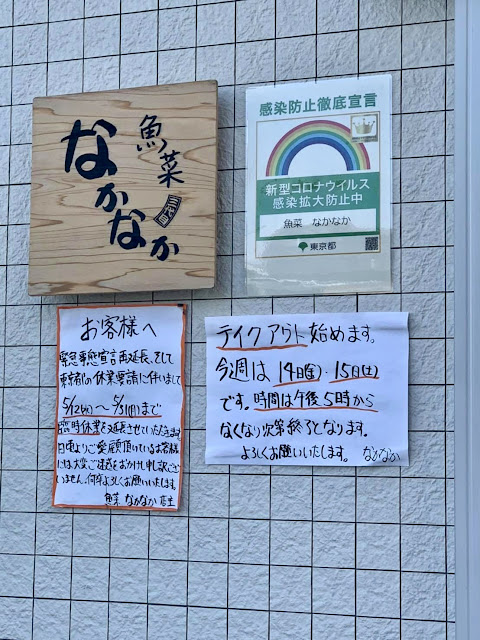 魚菜
なかなか
感染防止徹底宣言
新型コロナウイルス
感染拡大防止中
魚菜 なかなか
東京都
お客様へ
緊急事態宣言再延長、そして
東京都の休業要請に伴いまして
5/12(水)～5/31(月)まで
臨時休業を延長させていただきます
日頃よりご愛顧頂いているお客様
には大変ご迷惑をおかけし申し訳ござ
いません。何卒よろしくお願いいたします。
魚菜 なかなか 店主
テイクアウト始めます。
今週は14日(金)・15日(土)
です。時間は午後5時から
なくなり次第終了となります。
よろしくお願いいたします。 なかなか